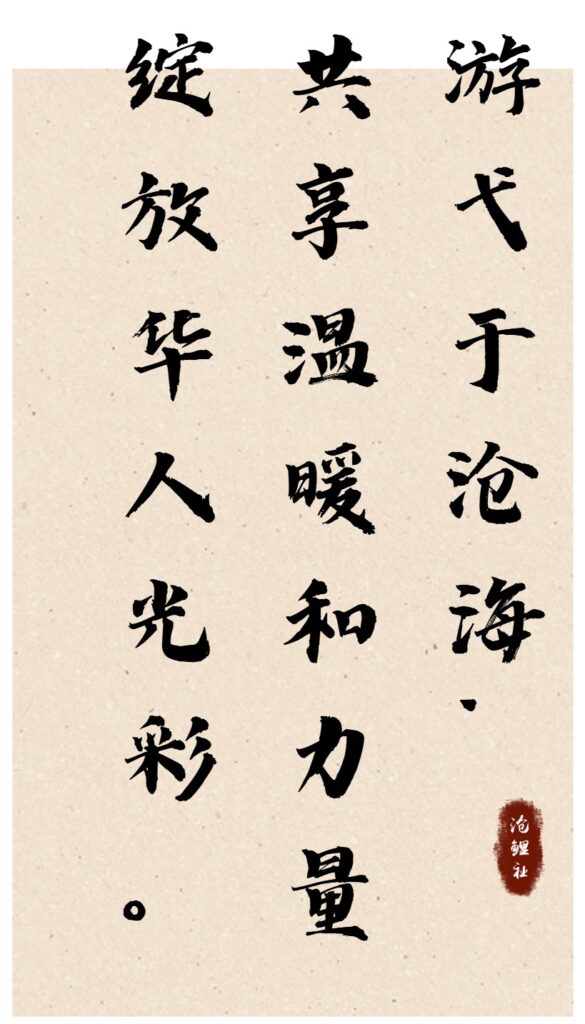 游弋于沧海，
共享温暖和力量
绽放华人光彩。
沧鲤社